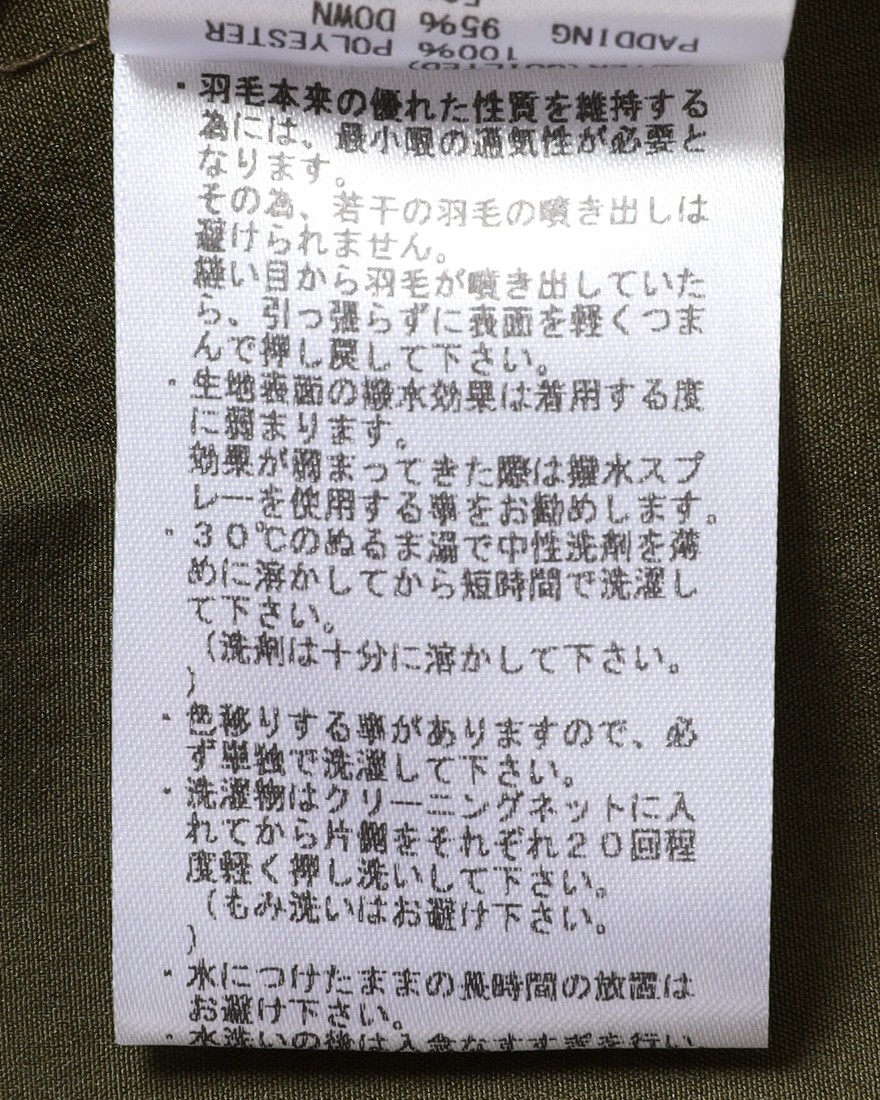 PADDING 95% DOWN
100% POLYESTER
・羽毛本来の優れた性質を維持する
為には、最小限の通気性が必要と
なります。
その為、若干の羽毛の噴き出しは
避けられません。
縫い目から羽毛が噴き出していた
ら、引っ張らずに表面を軽くつま
んで押し戻して下さい。
・生地表面の撥水効果は着用する度
に弱まります。
効果が弱まってきた際は撥水スプ
レーを使用する事をお勧めします。
・30℃のぬるま湯で中性洗剤を薄
めに溶かしてから短時間で洗濯し
て下さい。
(洗剤は十分に溶かして下さい。
)
・色移りする事がありますので、必
ず単独で洗濯して下さい。
・洗濯物はクリーニングネットに入
れてから片側をそれぞれ20回程
度軽く押し洗いして下さい。
(もみ洗いはお避け下さい。
)
・水につけたままの長時間の放置は
お避け下さい。
・水洗いの後は入念なすすぎを行い